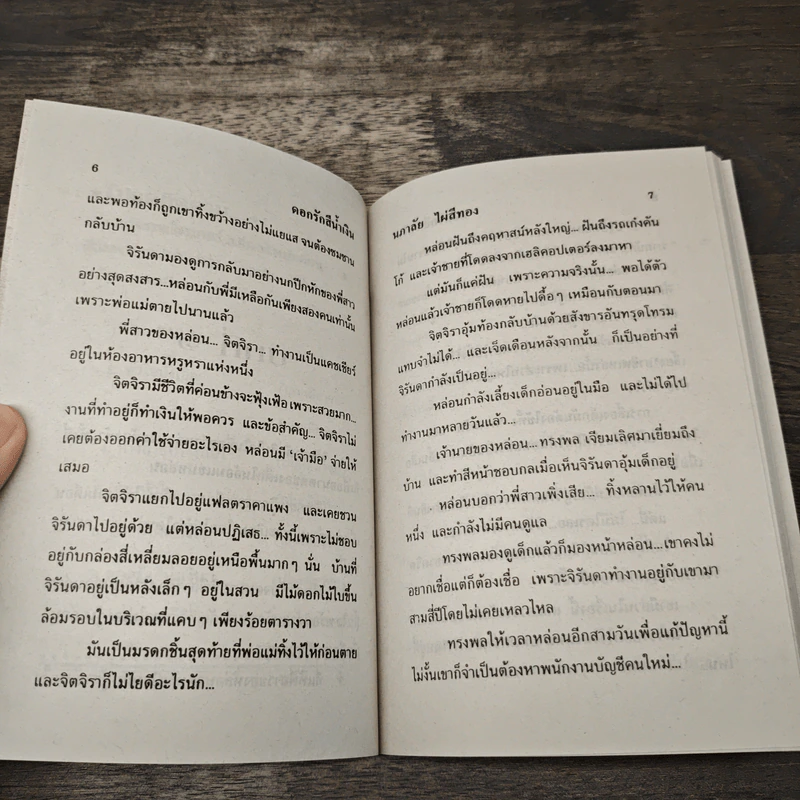 6
ดอกรักสีน้ำเงิน
และพอท้องก็ถูกเขาทิ้งขว้างอย่างไม่แยแส จนต้องซมซาน
กลับบ้าน
จิรันดามองดูการกลับมาอย่างนกปีกหักของพี่สาว
อย่างสุดสงสาร...หล่อนกับพี่มีเหลือกันเพียงสองคนเท่านั้น
เพราะพ่อแม่ตายไปนานแล้ว
พี่สาวของหล่อน... จิตจิรา... ทำงานเป็นแคชเชียร์
อยู่ในห้องอาหารหรูหราแห่งหนึ่ง
จิตจิรามีชีวิตที่ค่อนข้างจะฟุ้งเฟ้อ เพราะสวยมาก...
งานที่ทำอยู่ก็ทำเงินให้พอควร และข้อสำคัญ... จิตจิราไม่
เคยต้องออกค่าใช้จ่ายอะไรเอง หล่อนมี ‘เจ้ามือ’ จ่ายให้
เสมอ
จิตจิราแยกไปอยู่แฟลตราคาแพง และเคยชวน
จิรันดาไปอยู่ด้วย แต่หล่อนปฏิเสธ... ทั้งนี้เพราะไม่ชอบ
อยู่กับกล่องสี่เหลี่ยมลอยอยู่เหนือพื้นมากๆ นั่น บ้านที่
จิรันดาอยู่เป็นหลังเล็กๆ อยู่ในสวน มีไม้ดอกไม้ใบขึ้น
ล้อมรอบในบริเวณที่แคบๆ เพียงร้อยตารางวา
มันเป็นมรดกชิ้นสุดท้ายที่พ่อแม่ทิ้งไว้ให้ก่อนตาย
และจิตจิราก็ไม่ไยดีอะไรนัก...
7
นภาลัย ไผ่สีทอง
หล่อนฝันถึงคฤหาสน์หลังใหญ่... ฝันถึงรถเก๋งคัน
โก้ และเจ้าชายที่โดดลงจากเฮลิคอปเตอร์ลงมาหา
แต่มันก็แค่ฝัน เพราะความจริงนั้น... พอได้ตัว
หล่อนแล้วเจ้าชายก็โดดหายไปดื้อๆ เหมือนกับตอนมา
จิตจิราอุ้มท้องกลับบ้านด้วยสังขารอันทรุดโทรม
แทบจำไม่ได้... และเจ็ดเดือนหลังจากนั้น ก็เป็นอย่างที่
จิรันดากำลังเป็นอยู่...
หล่อนกำลังเลี้ยงเด็กอ่อนอยู่ในมือ และไม่ได้ไป
ทำงานมาหลายวันแล้ว...
เจ้านายของหล่อน... ทรงพล เจียมเลิศมาเยี่ยมถึง
บ้าน และทำสีหน้าชอบกลเมื่อเห็นจิรันดาอุ้มเด็กอยู่
หล่อนบอกว่าพี่สาวเพิ่งเสีย... ทิ้งหลานไว้ให้คน
หนึ่ง และกำลังไม่มีคนดูแล
ทรงพลมองดูเด็กแล้วก็มองหน้าหล่อน...เขาคงไม่
อยากเชื่อแต่ก็ต้องเชื่อ เพราะจิรันดาทำงานอยู่กับเขามา
สามสี่ปีโดยไม่เคยเหลวไหล
ทรงพลให้เวลาหล่อนอีกสามวันเพื่อแก้ปัญหานี้
ไม่งั้นเขาก็จำเป็นต้องหาพนักงานบัญชีคนใหม่...